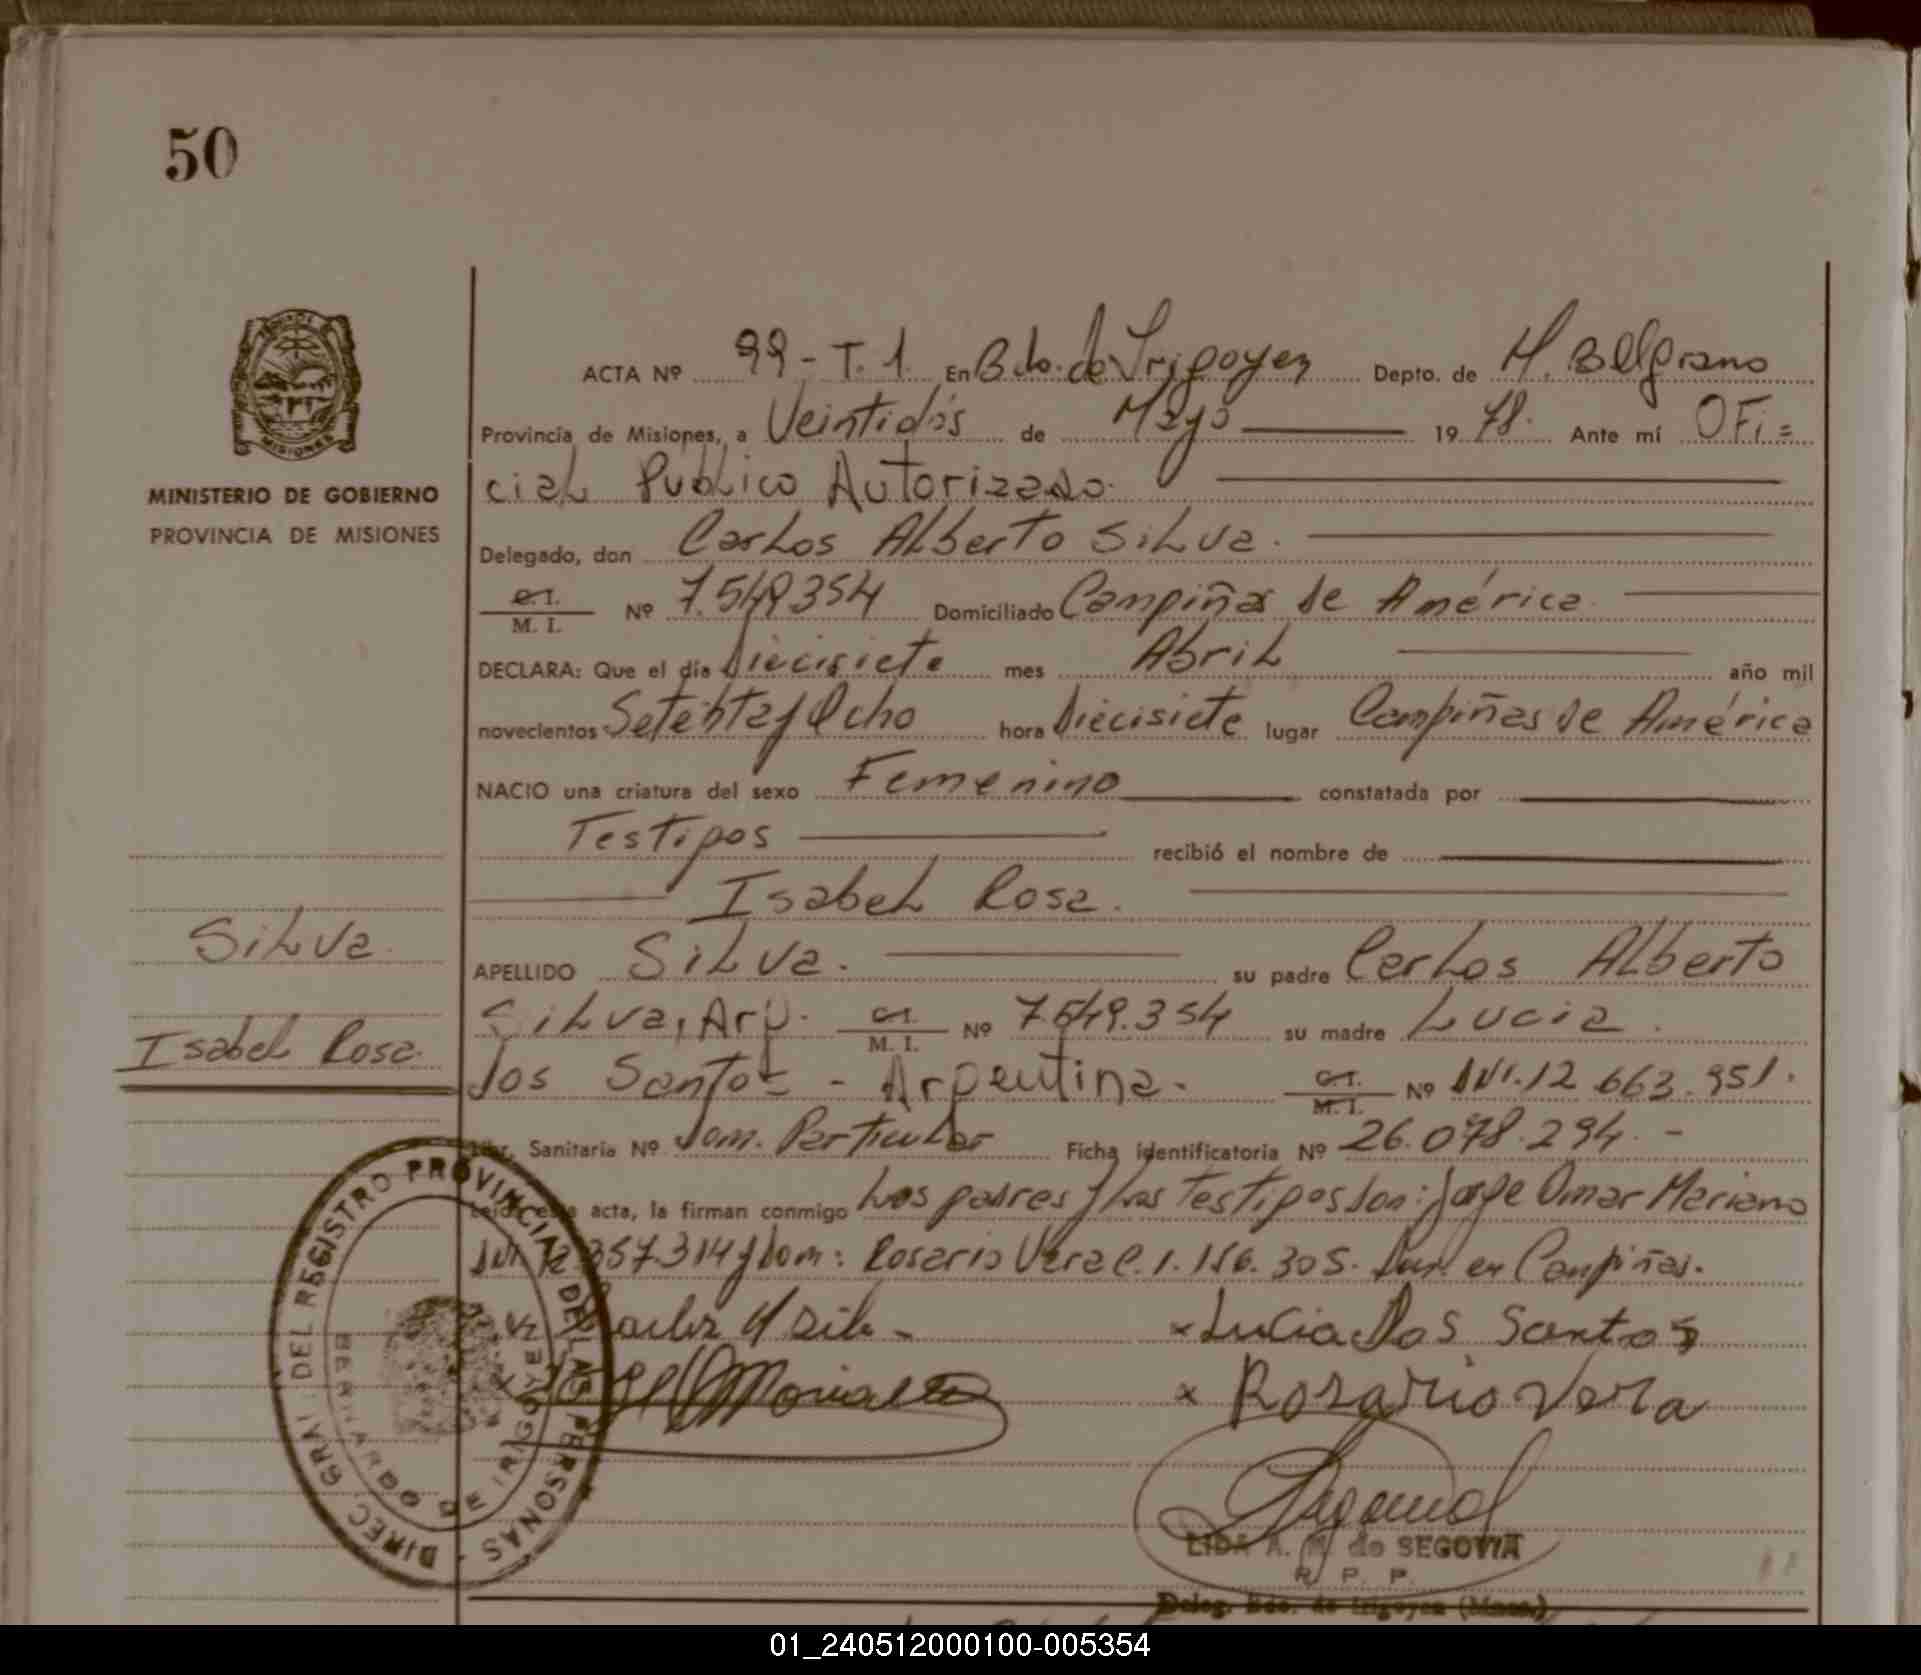 50
ACTA Nº 99 - T. 1. En Bdo. de Irigoyen Depto. de M. Belgrano
Provincia de Misiones, a Veintidós de Mayo 19 78. Ante mí OFi=
cial Público Autorizado.
MINISTERIO DE GOBIERNO
PROVINCIA DE MISIONES
Delegado, don Carlos Alberto Silva.
C. I. / M. I. Nº 7.549354 Domiciliado Campiñas de América.
DECLARA: Que el día Diecisiete mes Abril año mil
novecientos Setenta y Ocho hora Diecisiete lugar Campiñas de América
NACIO una criatura del sexo Femenino constatada por
Testigos recibió el nombre de
Isabel Rosa.
Silva.
APELLIDO Silva. su padre Carlos Alberto
Silva, Arg. C. I. / M. I. Nº 7.549.354 su madre Lucia.
Isabel Rosa.
Dos Santos - Argentina. C. I. / M. I. Nº DNI. 12 663.951.
Sanitaria Nº Dom. Particular Ficha identificatoria Nº 26.078.294. -
Leída esta acta, la firman conmigo Los padres y Los Testigos Son: Jorge Omar Mariano
DNI. 12.357.314 y Dom: Rosario Vera C. 1.156.305. Dom. en Campiñas.
x Lucia Dos Santos
x Rosario Vera
DIREC. GRAL DEL REGISTRO PROVINCIAL DE LAS PERSONAS
BERNARDO DE IRIGOYEN
LIDA A. M. de SEGOVIA
R. P. P.
Deleg. Bdo. de Irigoyen (Mnes.)
01_240512000100-005354